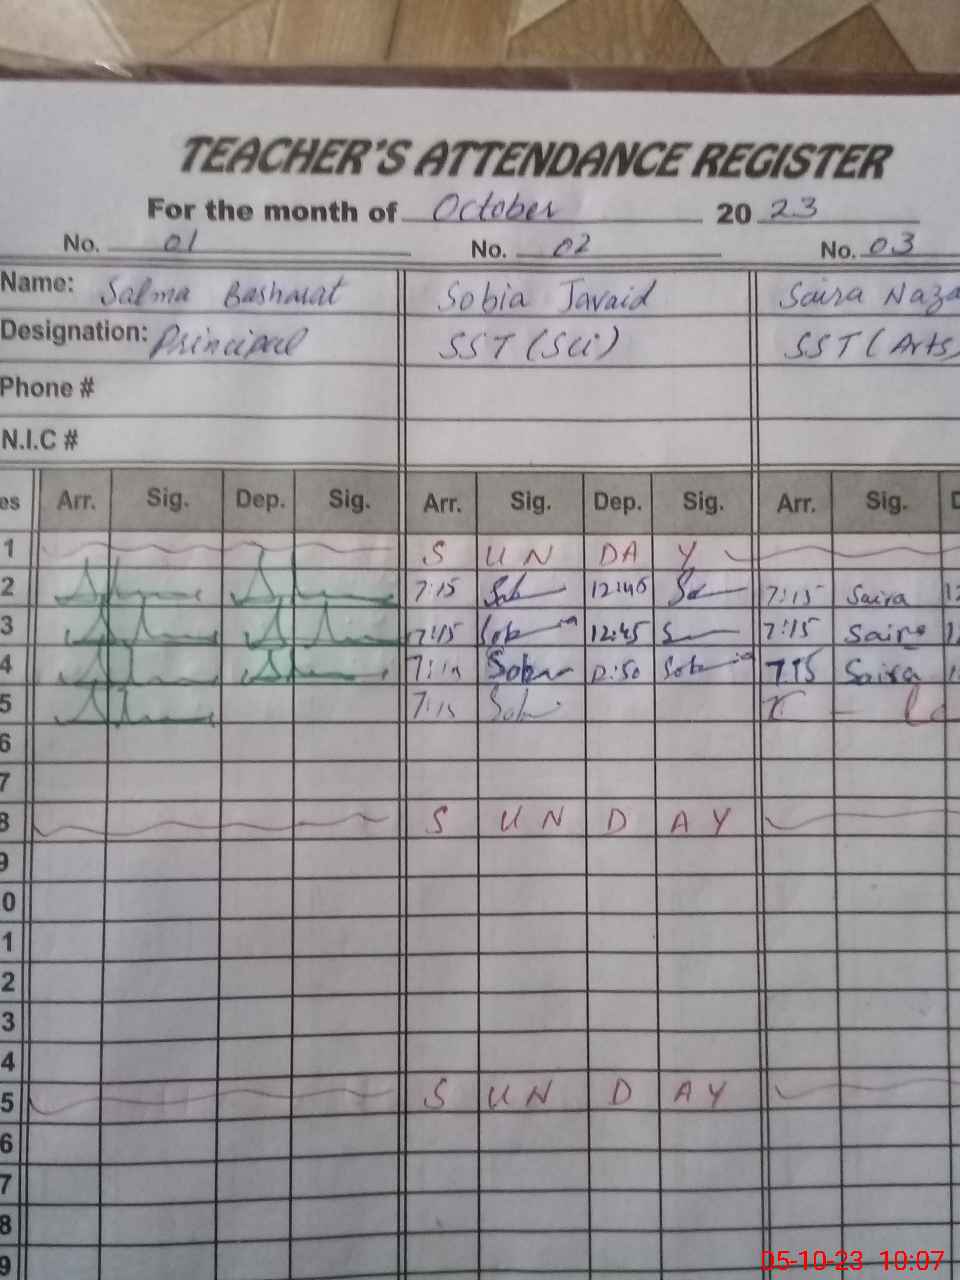 TEACHER'S ATTENDANCE REGISTER
For the month of October 2023
No. 01 No. 02 No. 03
Name: Salma Basharat Sobia Javaid Saira Naza
Designation: Principal SST (Sci) SST (Arts)
Phone #
N.I.C #
es Arr. Sig. Dep. Sig. Arr. Sig. Dep. Sig. Arr. Sig. D
1 S U N DA Y
2 7:15 12:45 7:15 Saira 12
3 7:15 12:45 7:15 Saira
4 Sobia 12:50 Sobia 7:15 Saira
5
6
7
8 S U N D A Y
9
0
1
2
3
4
5 S U N D A Y
6
7
8
9
05-10-23 10:07